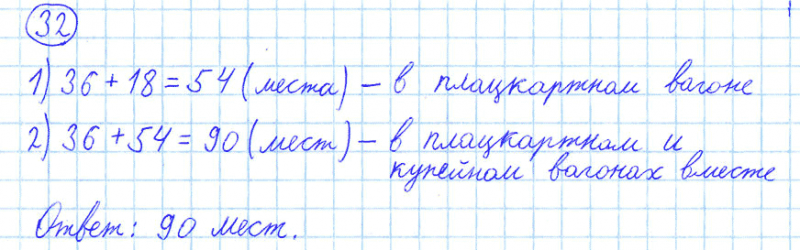 32
1) 36 + 18 = 54 (места) – в плацкартном вагоне
2) 36 + 54 = 90 (мест) – в плацкартном и
купейном вагонах вместе
Ответ: 90 мест.